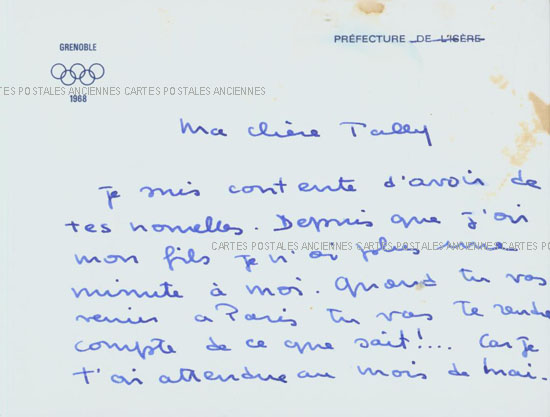 GRENOBLE
1968
PRÉFECTURE DE L'ISÈRE
CARTES POSTALES ANCIENNES CARTES POSTALES ANCIENNES
Ma chère Tally
je suis contente d'avoir de
tes nouvelles. Depuis que j'ai
CARTES POSTALES ANCIENNES CARTES POSTALES ANCIENNES CARTES PO
mon fils je n'ai plus une
minute à moi. Quand tu vas
venir a Paris tu vas te rendre
compte de ce que sait!... Car je
t'ai attendue au mois de mai.